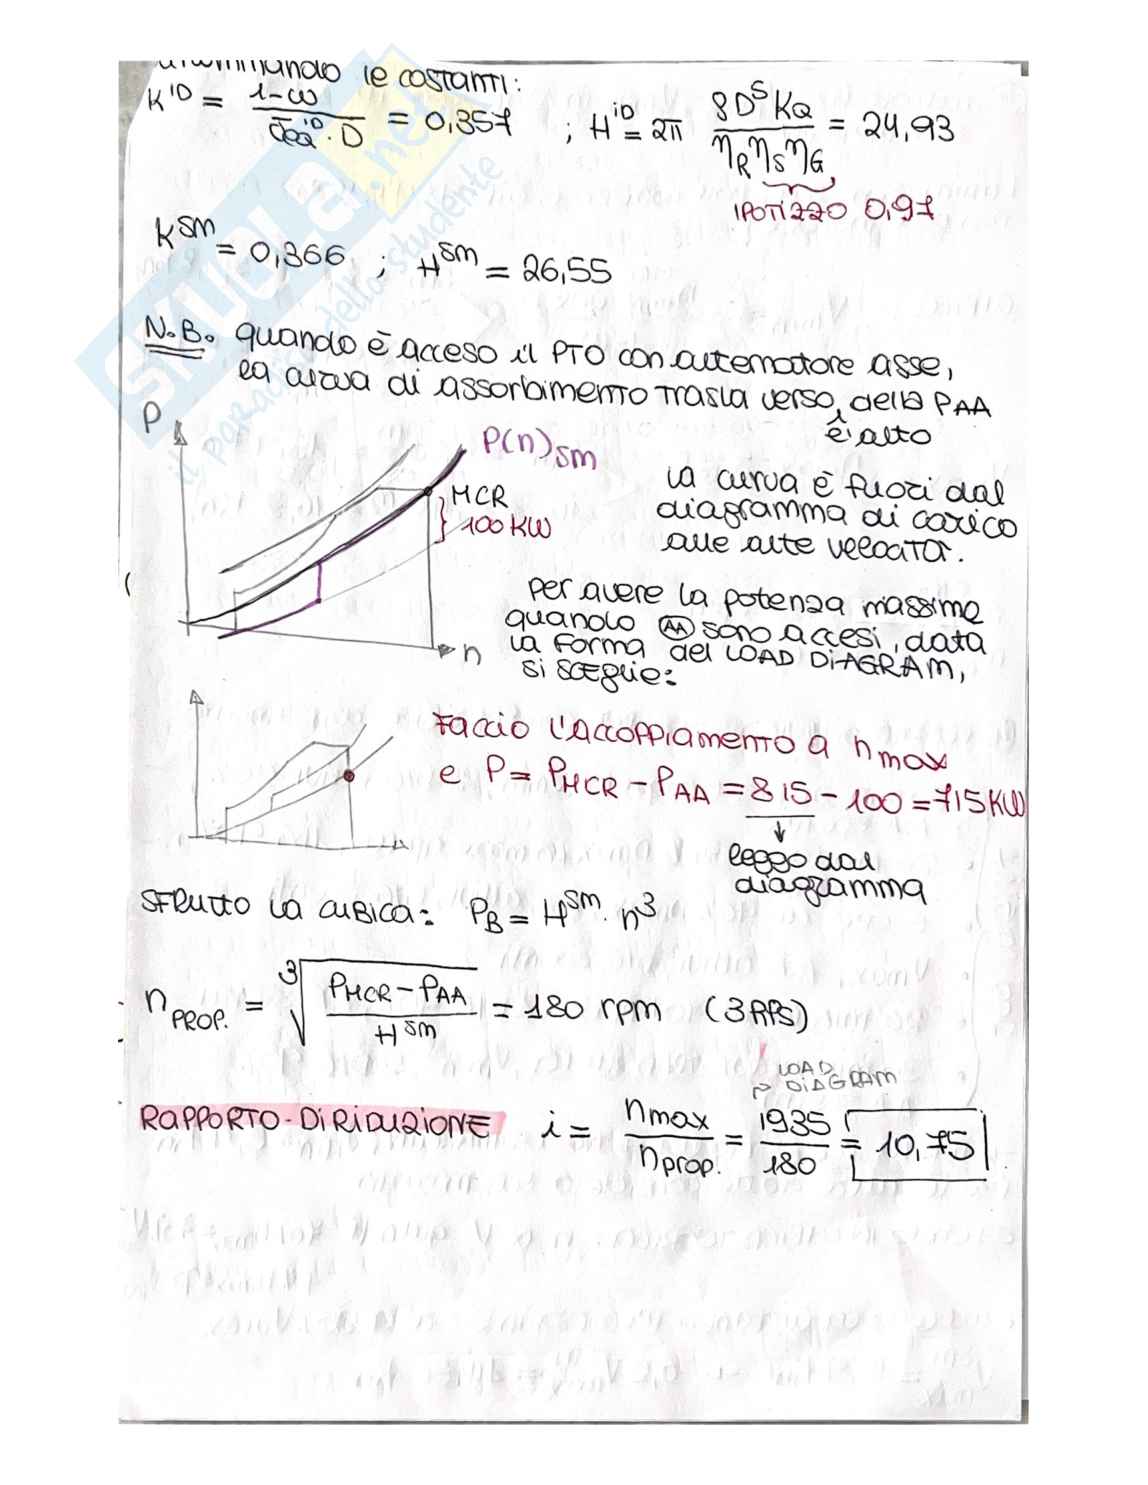 le costanti:
K^ID = (1-ω)/(J_eq^ID · D) = 0,357 ; H^ID = 2π (ρD^5 K_Q)/(η_R η_S η_G) = 24,93
IPOTIZZO 0,97
K^SM = 0,366 ; H^SM = 26,55
N.B. quando è acceso il PTO con alternatore asse,
la curva di assorbimento trasla verso della P_AA
l'alto
P
P(n)_SM
MCR
100KW
n
la curva è fuori dal
diagramma di carico
alle alte velocità.
per avere la potenza massima
quando AA sono accesi, data
la forma del LOAD DIAGRAM,
si sceglie:
Faccio l'accoppiamento a n_max
e P = P_MCR - P_AA = 815 - 100 = 715KW
leggo dal
diagramma
SFRUTTO la cubica: P_B = H^SM · n^3
n_PROP. = ∛((P_MCR - P_AA)/H^SM) = 180 rpm (3RPS)
LOAD
DIAGRAM
RAPPORTO-DI RIDUZIONE i = n_max/n_prop. = 1935/180 = 10,75
SKUOLA.net
il paradiso dello studente